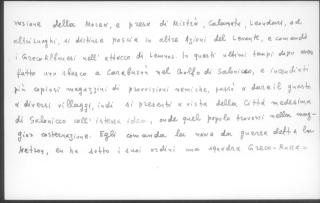 vasione della Morea, e presa di Mistrà, Calamata, Leondari, ed
altri luoghi, si distinse poscia in altre azioni del Levante, e comandò
i Greco Albanesi nell'attacco di Lemnos. In questi ultimi tempi dopo aver
fatto uno sbarco a Caraburnù nel Golfo di Salonicco, e incendiati
più copiosi magazzini di provvisioni nemiche, passò a dare il guasto
a diversi villaggi, indi si presentò a vista della Città medesima
di Salonicco coll'istessa idea, onde quel popolo trovossi nella mag-
gior costernazione. Egli comanda la nave da guerra detta la
, ed ha sotto i suoi ordini una squadra Greco-Russa.-